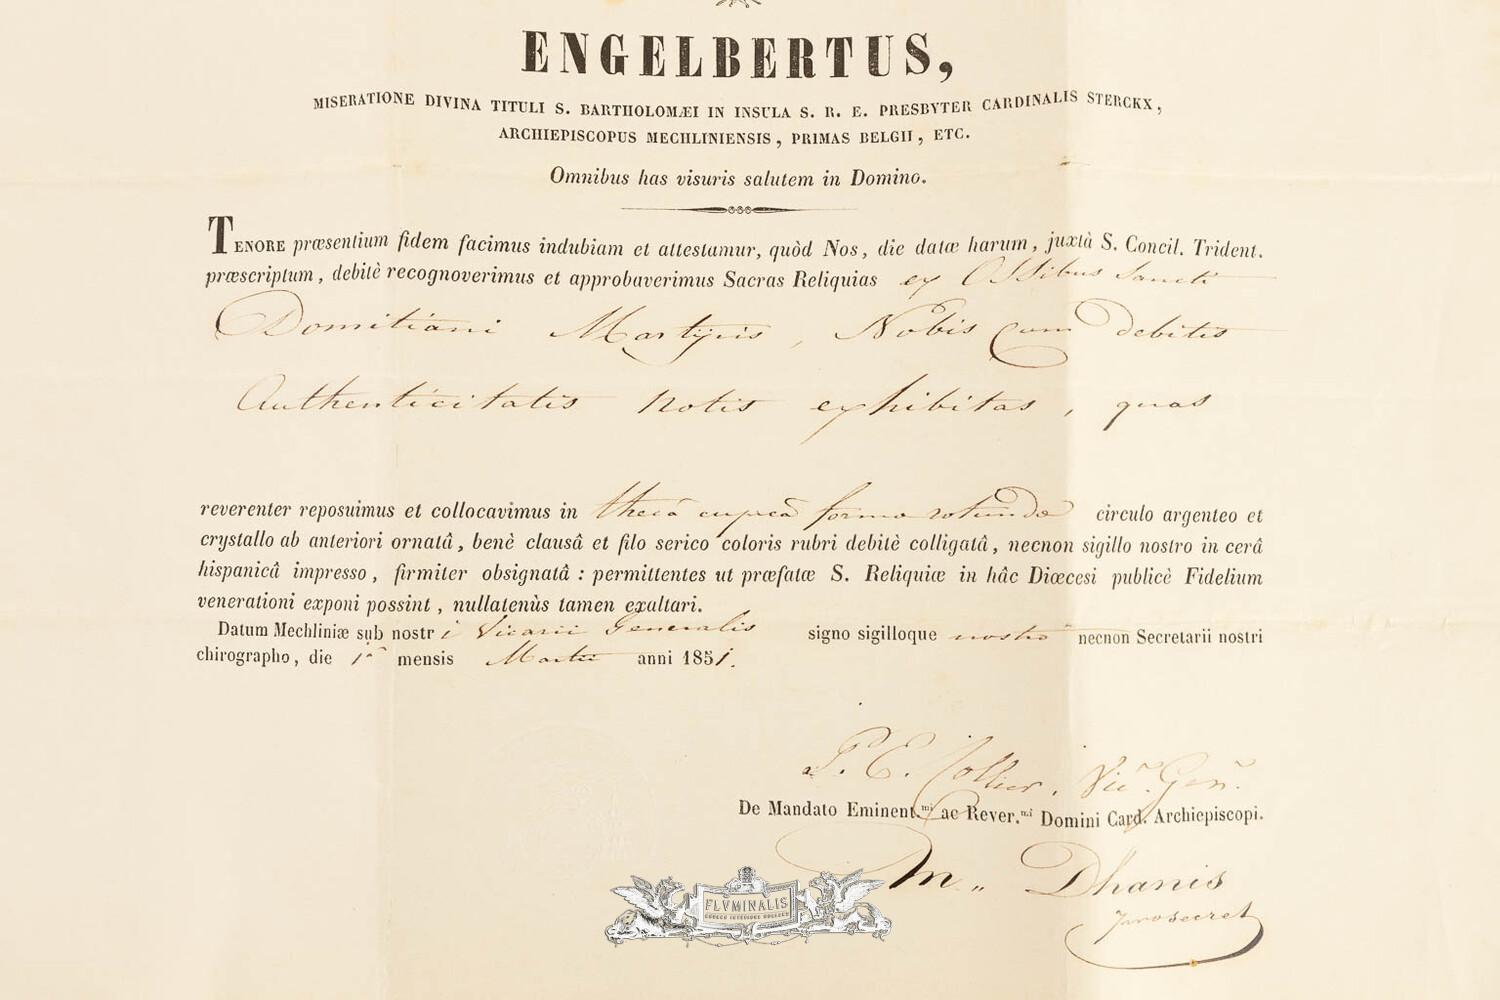 ENGELBERTUS,
MISERATIONE DIVINA TITULI S. BARTHOLOMÆI IN INSULA S. R. E. PRESBYTER CARDINALIS STERCKX,
ARCHIEPISCOPUS MECHLINIENSIS, PRIMAS BELGII, ETC.
Omnibus has visuris salutem in Domino.
TENORE præsentium fidem facimus indubiam et attestamur, quòd Nos, die datæ harum, juxtà S. Concil. Trident.
præscriptum, debitè recognoverimus et approbaverimus Sacras Reliquias ex Ossibus Sancti
Domitiani Martyris, Nobis cum debitis
Authenticitatis notis exhibitas, quas
reverenter reposuimus et collocavimus in thecâ cupreâ forma rotunda circulo argenteo et
crystallo ab anteriori ornatâ, benè clausâ et filo serico coloris rubri debitè colligatâ, necnon sigillo nostro in cerâ
hispanicâ impresso, firmiter obsignatâ : permittentes ut præfatæ S. Reliquiæ in hâc Diœcesi publicè Fidelium
venerationi exponi possint, nullatenùs tamen exaltari.
Datum Mechliniæ sub nostri Vicarii Generalis signo sigilloque nostro necnon Secretarii nostri
chirographo, die 1ª mensis Martii anni 1851.
P. C. Collier, Vic. Gen.
De Mandato Eminent.mi ac Rever.mi Domini Card. Archiepiscopi.
m. Dhanis
prosecret
FLVMINALIS